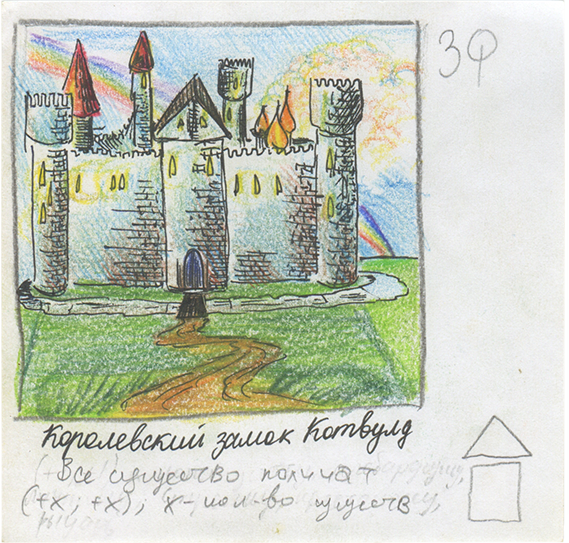 3Ф
Королевский замок Котвулд
Все существо получат
(+X; +X); X - кол-во существ